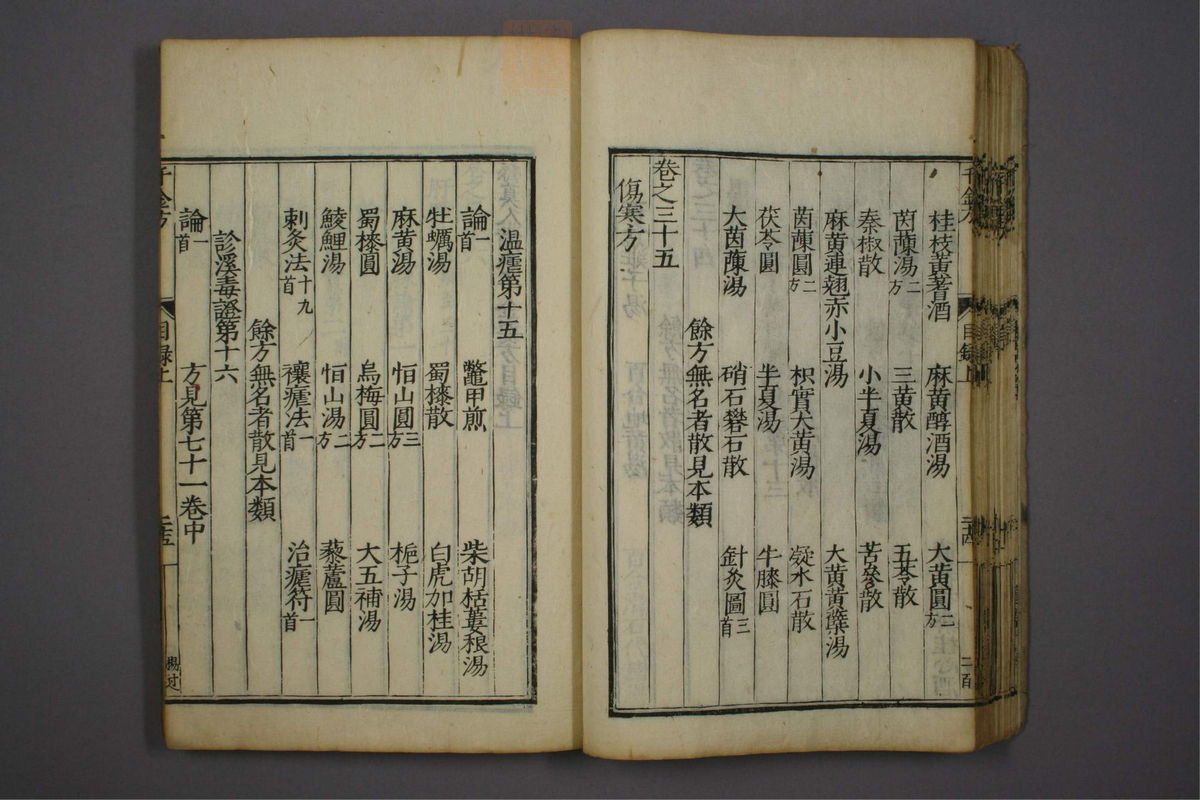 桂枝黃蓍酒 麻黃醇酒湯 大黃圓二方
茵蔯湯二方 三黃散 五苓散
秦椒散 小半夏湯 苦參散
麻黃連翹赤小豆湯 大黃黃蘗湯
茵蔯圓二方 枳實大黃湯 凝水石散
茯苓圓 半夏湯 牛膝圓
大茵蔯湯 硝石礬石散 針灸圖三首
餘方無名者散見本類
卷之三十五
傷寒方
溫瘧第十五
論一首 鼈甲煎 柴胡栝蔞根湯
牡蠣湯 蜀㯕散 白虎加桂湯
麻黃湯 恒山圓三方 梔子湯
蜀㯕圓 烏梅圓二方 大五補湯
鯪鯉湯 恒山湯二方 藜蘆圓
刺灸法十九首 禳瘧法一首 治瘧符一首
餘方無名者散見本類
診溪毒證第十六
論一首 方見第七十一卷中
千金方 目錄上